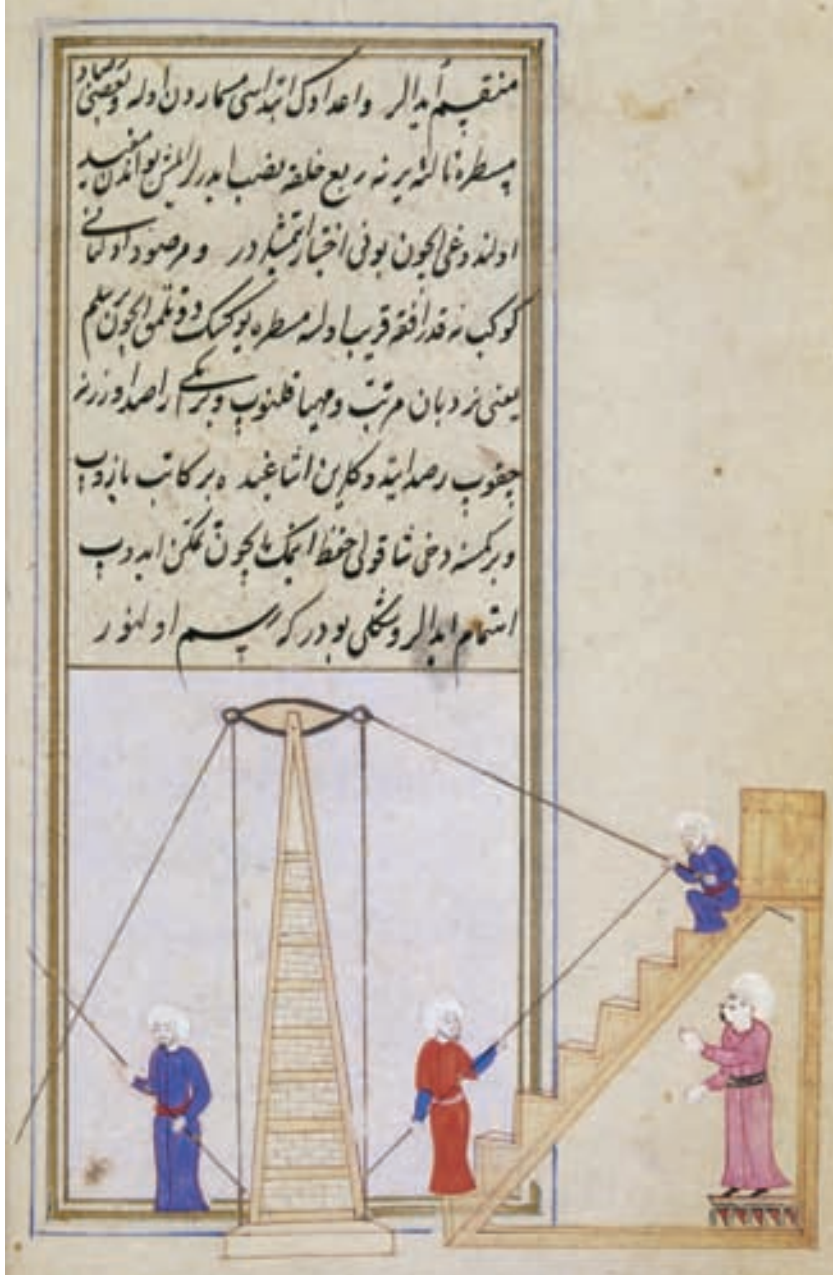 منقسم ایدرلر واعدادک ابتداسی مسماردن اوله وبعضی
مسطره ثالثه یرنه ربع حلقه نصب ایدرلر ایمش بو اندن مفید
اولندوغیچون بونی اختیار ایتمشلردر و مرصود اولان
کوکب نه قدر افقه قریب اوله مسطره یوکسک دقلمق ایچون برسلم
یعنی نردبان مرتب ومهیا قلنوب وبریکی راصد اوزرنه
چقوب رصد ایدوکلرین اشاغیده بر کاتب یازوب
وبرکمسنه دخی شاقولی حفظ ایتمک ایچون تمکن ایدوب
اهتمام ایدرلر وشکلی بودرکه رسم اولنور